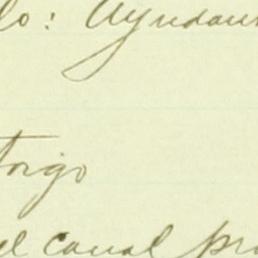 lo: Ayudan
torgo
el canal pro